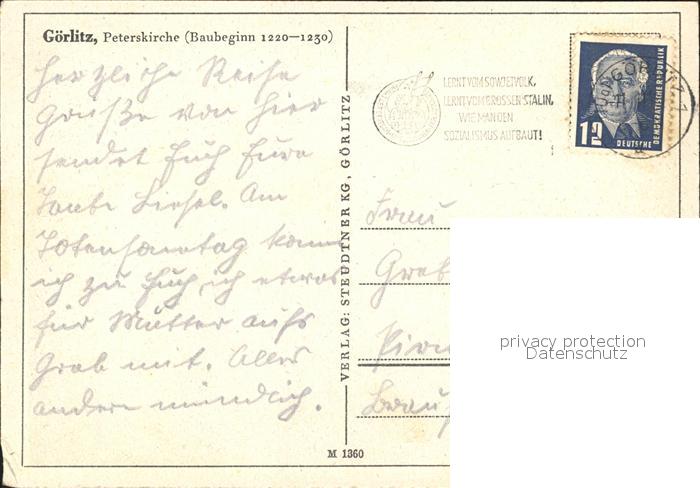 Görlitz, Peterskirche (Baubeginn 1220—1230)
Herzliche Reise
Grüße von hier
sendet Euch Eure
Liesel. Am
Totensonntag komme
ich zu Euch, ich etwas
für Mutter aufs
Grab mit. Alles
andere mündlich.
VERLAG: STEUDTNER KG, GÖRLITZ
M 1360
LERNT VOM SOWJETVOLK,
LERNT VOM GROSSEN STALIN,
WIE MAN DEN
SOZIALISMUS AUFBAUT!
12
DEUTSCHE
DEMOKRATISCHE REPUBLIK
Frau
privacy protection
Datenschutz